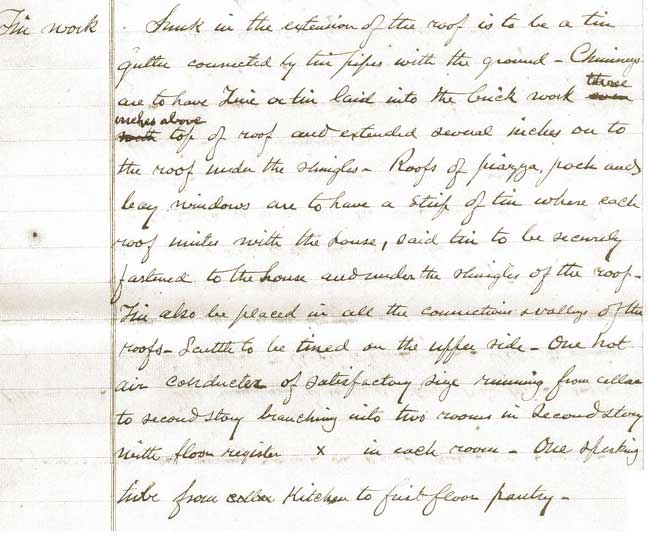 Tin work . Sunk in the extension of the roof is to be a tin
gutter connected by tin pipes with the ground - Chimneys
are to have Zinc or tin laid into the brick work three even
inches above with top of roof and extended several inches on to
the roof under the shingles - Roofs of piazza, poch and
bay windows are to have a strip of tin where each
roof unites with the house, said tin to be securely
fastened to the house and under the shingles of the roof -
Tin also be placed in all the connections & valleys of the
roofs - Scuttle to be tined on the upper side - One hot
air conductor of satisfactory size running from cellar
to second story branching into two rooms in Second story
with floor register x in each room - One speaking
tube from cellar Kitchen to first floor pantry -